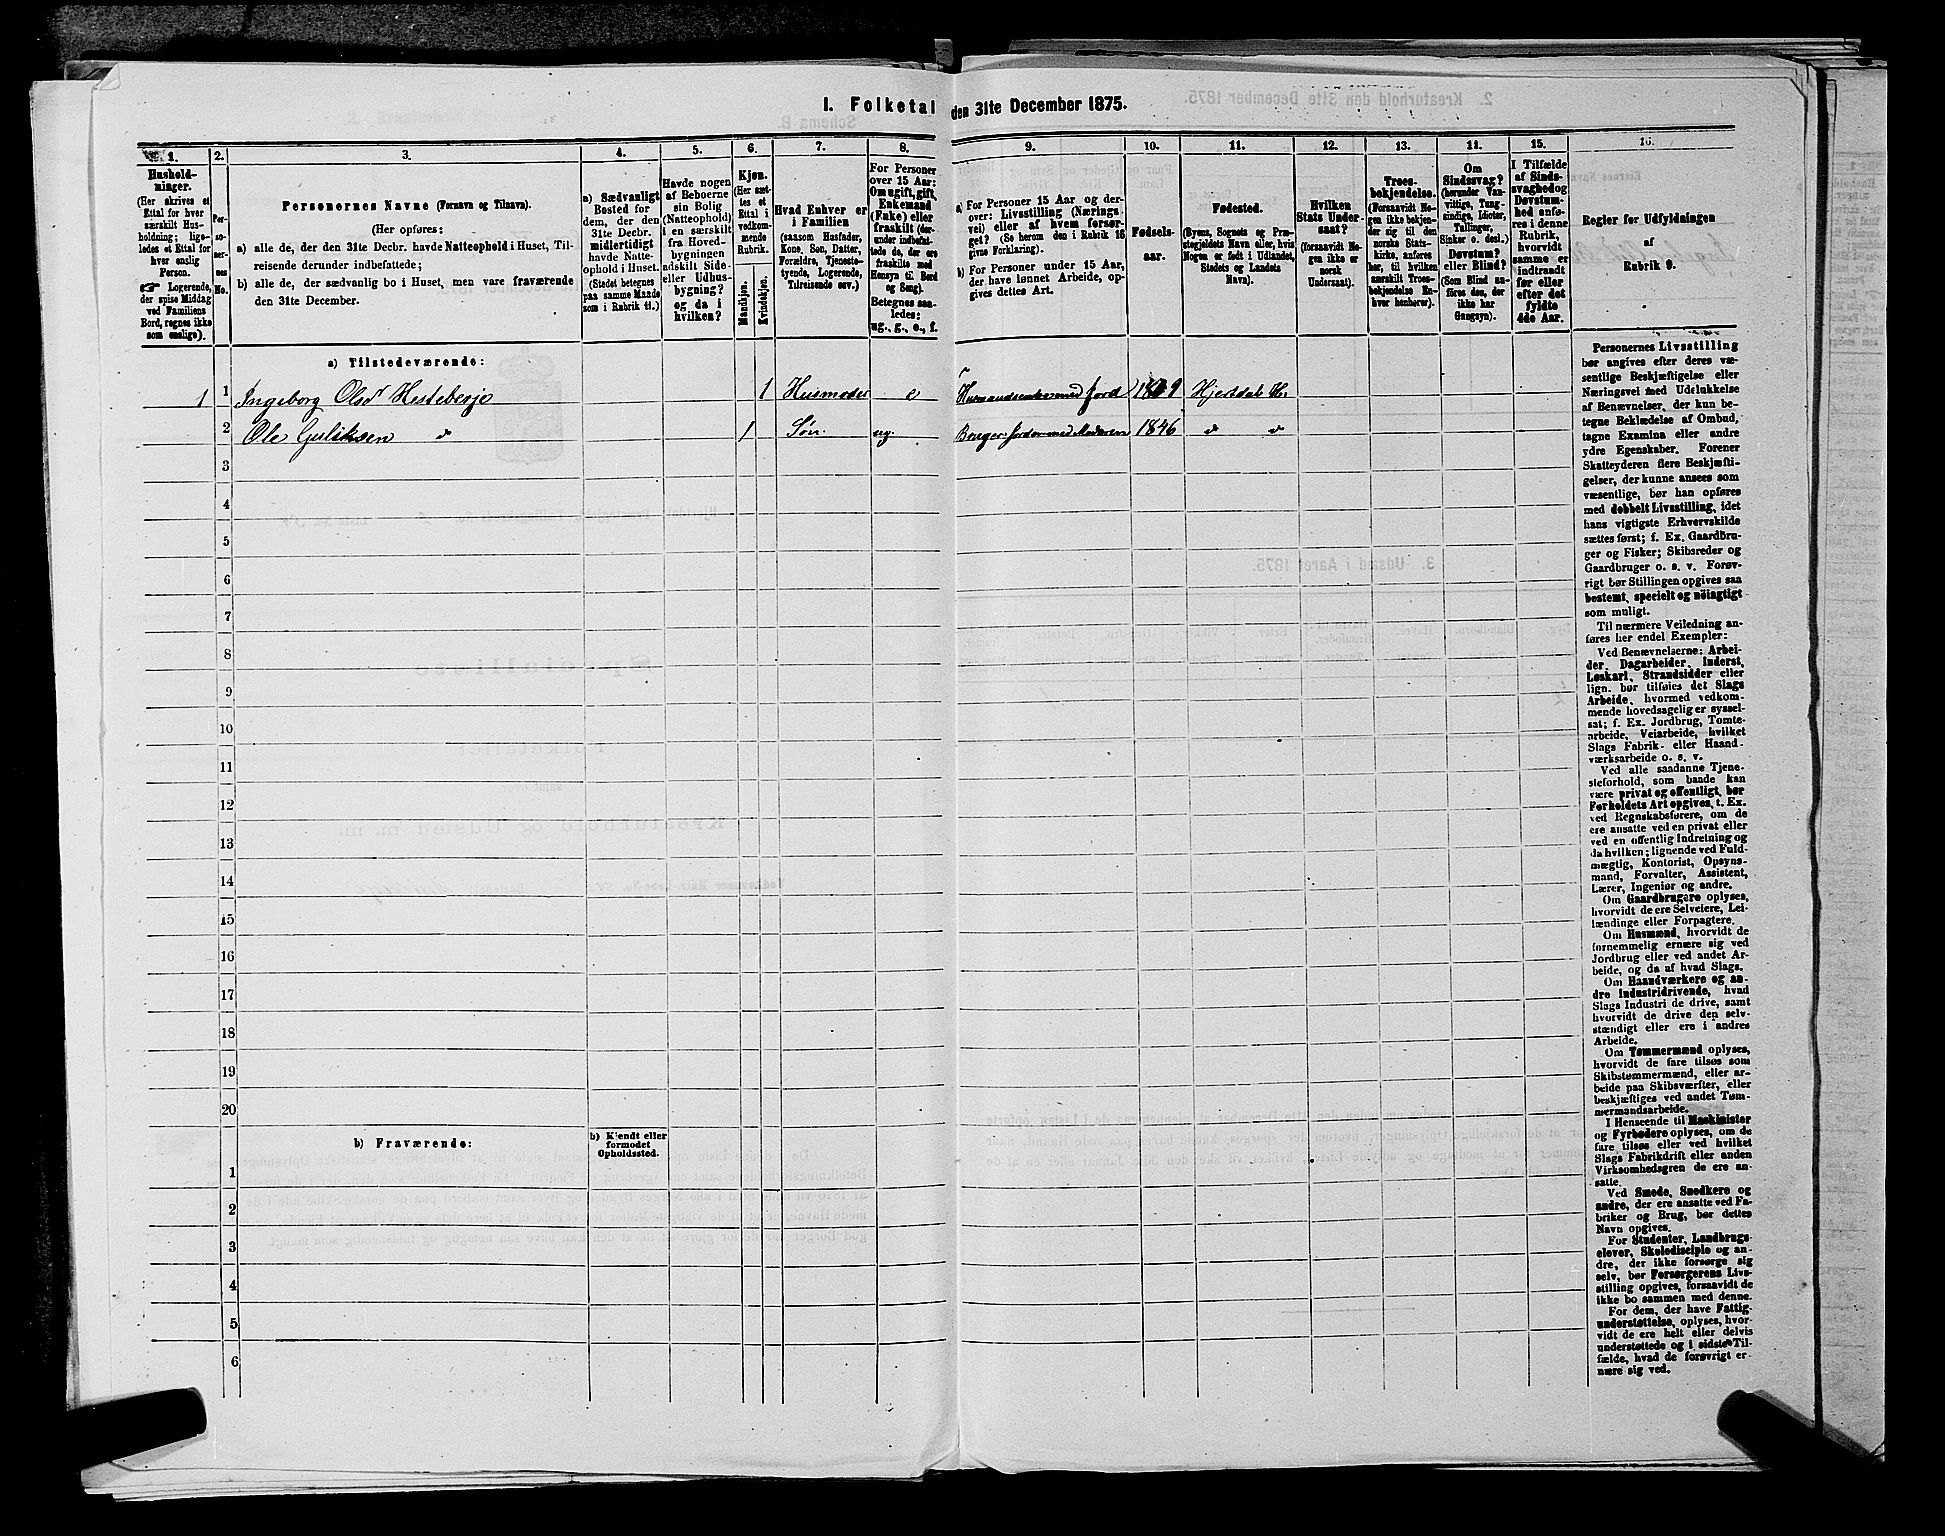 I. Folketal den 31te December 1875.
1.
2.
3.
4.
5.
6.
7.
8.
9.
10.
11.
12.
13.
11.
15.
16.
Hushold-
ninger.
(Her skrives et
Ettal for hver
særskilt Hus-
holdning; lige-
ledes et Ettal for
hver enslig
Person.
☞ Logerende,
der spise Middag
ved Familiens
Bord, regnes ikke
som enslige).
Per-
so-
ner-
nes
No.
Personernes Navne (Fornavn og Tilnavn).
(Her opføres:
a) alle de, der den 31te Decbr. havde Natteophold i Huset, Til-
reisende derunder indbefattede;
b) alle de, der sædvanlig bo i Huset, men vare fraværende
den 31te December.
a) Sædvanligt
Bosted for
dem, der den
31te Decbr.
midlertidigt
havde Natte-
ophold i Huset.
(Stedet betegnes
paa samme Maade
som i Rubrik 11.)
Havde nogen
af Beboerne
sin Bolig
(Natteophold)
i en særskilt
fra Hoved-
bygningen
adskilt Side-
eller Udhus-
bygning?
og da i
hvilken?
Kjøn.
(Her sæt-
tes et
Ettal i
vedkom-
mende
Rubrik.
Mandkjøn.
Kvindekjøn.
Hvad Enhver er
i Familien
(saasom Husfader,
Kone, Søn, Datter,
Forældre, Tjeneste-
tyende, Logerende,
Tilreisende osv.)
For Personer
over 15 Aar;
Om ugift, gift,
Enkemand
(Enke) eller
fraskilt (der-
unde indbefat-
tede de, der ere
fraskilte med
Hensyn til Bord
og Seng).
Betegnes saa-
ledes:
ug., g., e., f.
a) For Personer 15 Aar og der-
over: Livsstilling (Nærings-
vei) eller af hvem forsør-
get? (Se herom den i Rubrik 16
givne Forklaring).
b) For Personer under 15 Aar,
der have lønnet Arbeide, op-
gives dettes Art.
Fødsels-
aar.
Fødested.
(Byens, Sognets og Præ-
stegjeldets Navn eller, hvis
Nogen er født i Udlandet,
Stedets og Landets
Navn).
Hvilken
Stats Under-
saat?
(forsaavidt No-
gen ikke er
norsk
Undersaat).
Troes-
bekjendelse.
(Forsaavidt No-
gen ikke bekjen-
der sig til den
norske Stats-
kirke, anføres
her, til hvilken
særskilt Troes-
bekjendelse En-
hver henhører).
Om
Sindssvag?
(herunder Van-
vittige, Tung-
sindige, Idioter,
Tullinger,
Sinker o. desl.)
Døvstum?
eller Blind?
(Som Blind an-
føres den, der
ikke har
Gangsyn).
I Tilfælde
af Sinds-
svaghed og
Døvstum-
hed anfø-
res i denne
Rubrik,
hvorvidt
samme er
indtraadt
før eller
efter det
fyldte
4de Aar.
Regler for Udfyldningen
af
Rubrik 9.
a) Tilstedeværende:
1 1 Ingeborg Olsd Hesteberje 1 Husmoder e Husmandsenke med Jord Hjertdal
2 Ole Guliksen d 1 Søn ug. Bruger Jorden med Moderen 1846 d d
3
4
5
6
7
8
9
10
11
12
13
14
15
16
17
18
19
20
b) Fraværende:
b) Kjendt eller
formodet
Opholdssted.
1
2
3
4
5
6
Personernes Livsstilling
bør angives efter deres væ-
sentlige Beskjæftigelse eller
Næringsvei med Udelukkelse
af Benævnelser, der kun be-
tegne Beklædelse af Ombud,
tagne Examina eller andre
ydre Egenskaber. Forener
Skatteyderen flere Beskjæfti-
gelser, der kunne ansees som
væsentlige, bør han opføres
med dobbelt Livsstilling, idet
hans vigtigste Erhvervskilde
sættes først; f. Ex. Gaardbru-
ger og Fisker; Skibsreder og
Gaardbruger o. s. v. Forøv-
rigt bør Stillingen opgives saa
bestemt, specielt og nöiagtigt
som muligt.
Til nærmere Veiledning an-
føres her endel Exempler:
Ved Benævnelserne: Arbei-
der, Dagarbeider, Inderst,
Løskarl, Strandsidder eller
lign. bør tilføies det Slags
Arbeide, hvormed vedkom-
mende hovedsagelig er syssel-
sat; f. Ex. Jordbrug, Tomte-
arbeide, Veiarbeide, hvilket
Slags Fabrik- eller Haand-
værksarbeide o. s. v.
Ved alle saadanne Tjene-
steforhold, som baade kan
være privat og offentligt, bør
Forholdets Art opgives, t. Ex.
ved Regnskabsførere, om de
ere ansatte ved en privat eller
ved en offentlig Indretning og
da hvilken; lignende ved Fuld-
mægtig, Kontorist, Opsyns-
mand, Forvalter, Assistent,
Lærer, Ingeniør og andre.
Om Gaardbrugere oplyses,
hvorvidt de ere Selveiere, Lei-
lændinge eller Forpagtere.
Om Husmænd, hvorvidt de
fornemmelig ernære sig ved
Jordbrug eller ved andet Ar-
beide, og da af hvad Slags.
Om Haandværkere og an-
dre Industridrivende, hvad
Slags Industri de drive, samt
hvorvidt de drive den selv-
stændigt eller ere i andres
Arbeide.
Om Tømmermænd oplyses,
hvorvidt de fare tilsøs som
Skibstømmermænd, eller ar-
beide paa Skibsværfter, eller
beskjæftiges ved andet Tøm-
mermandsarbeide.
I Henseende til Maskinister
og Fyrbødere oplyses, om de
fare tilsøs eller ved hvilket
Slags Fabrikdrift eller anden
Virksomhedsgren de ere an-
satte.
Ved Smede, Snedkere og
andre, der ere ansatte ved Fa-
briker og Brug, bør dettes
Navn opgives.
For Studenter, Landbrugs-
elever, Skoledisciple og an-
dre, der ikke forsørge sig
selv, bør Forsørgerens Livs-
stilling opgives, forsaavidt de
ikke bo sammen med denne.
For dem, der have Fattig-
understøttelse, oplyses, hvor-
vidt de ere helt eller delvis
understøttede og i sidste Til-
fælde, hvad de forøvrigt er-
nære sig ved.